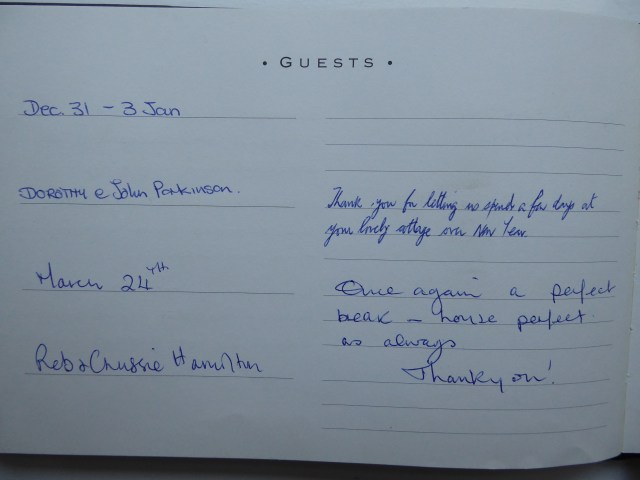 • GUESTS •
Dec. 31 - 3 Jan
DOROTHY & John Parkinson.
Thank you for letting us spend a few days at
your lovely cottage over New Year.
March 24th
Once again a perfect
break - house perfect
as always
Thankyou!
Hamilton